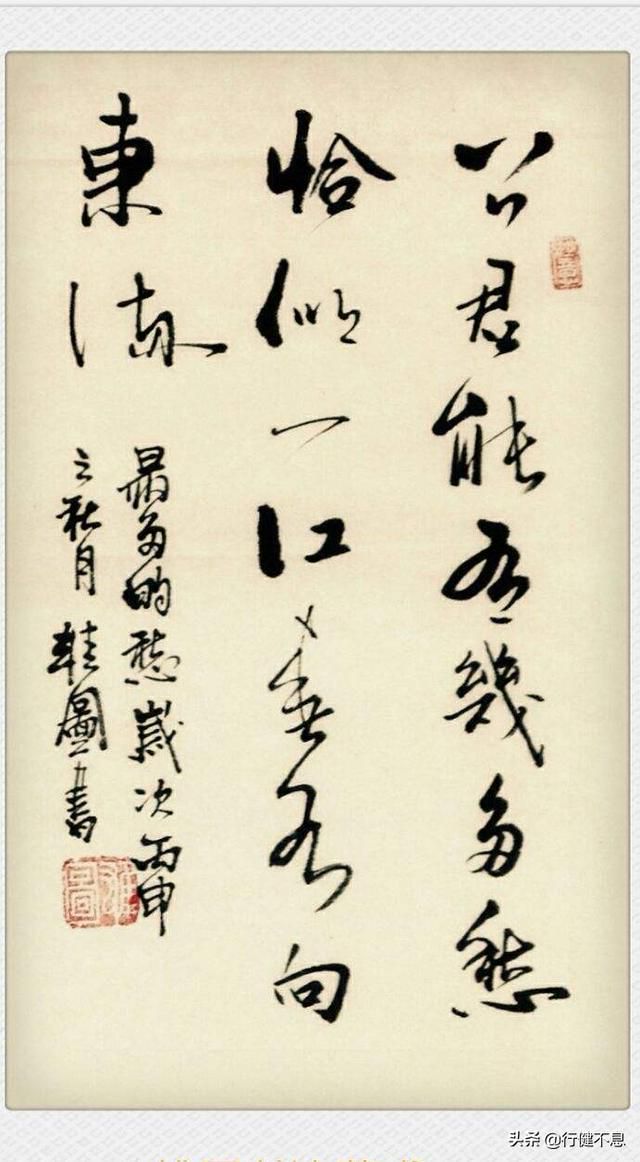 問君能有幾多愁
恰似一江春水向
東流
最多的愁歲次丙申
之秋月圖書
头条 @行健不息